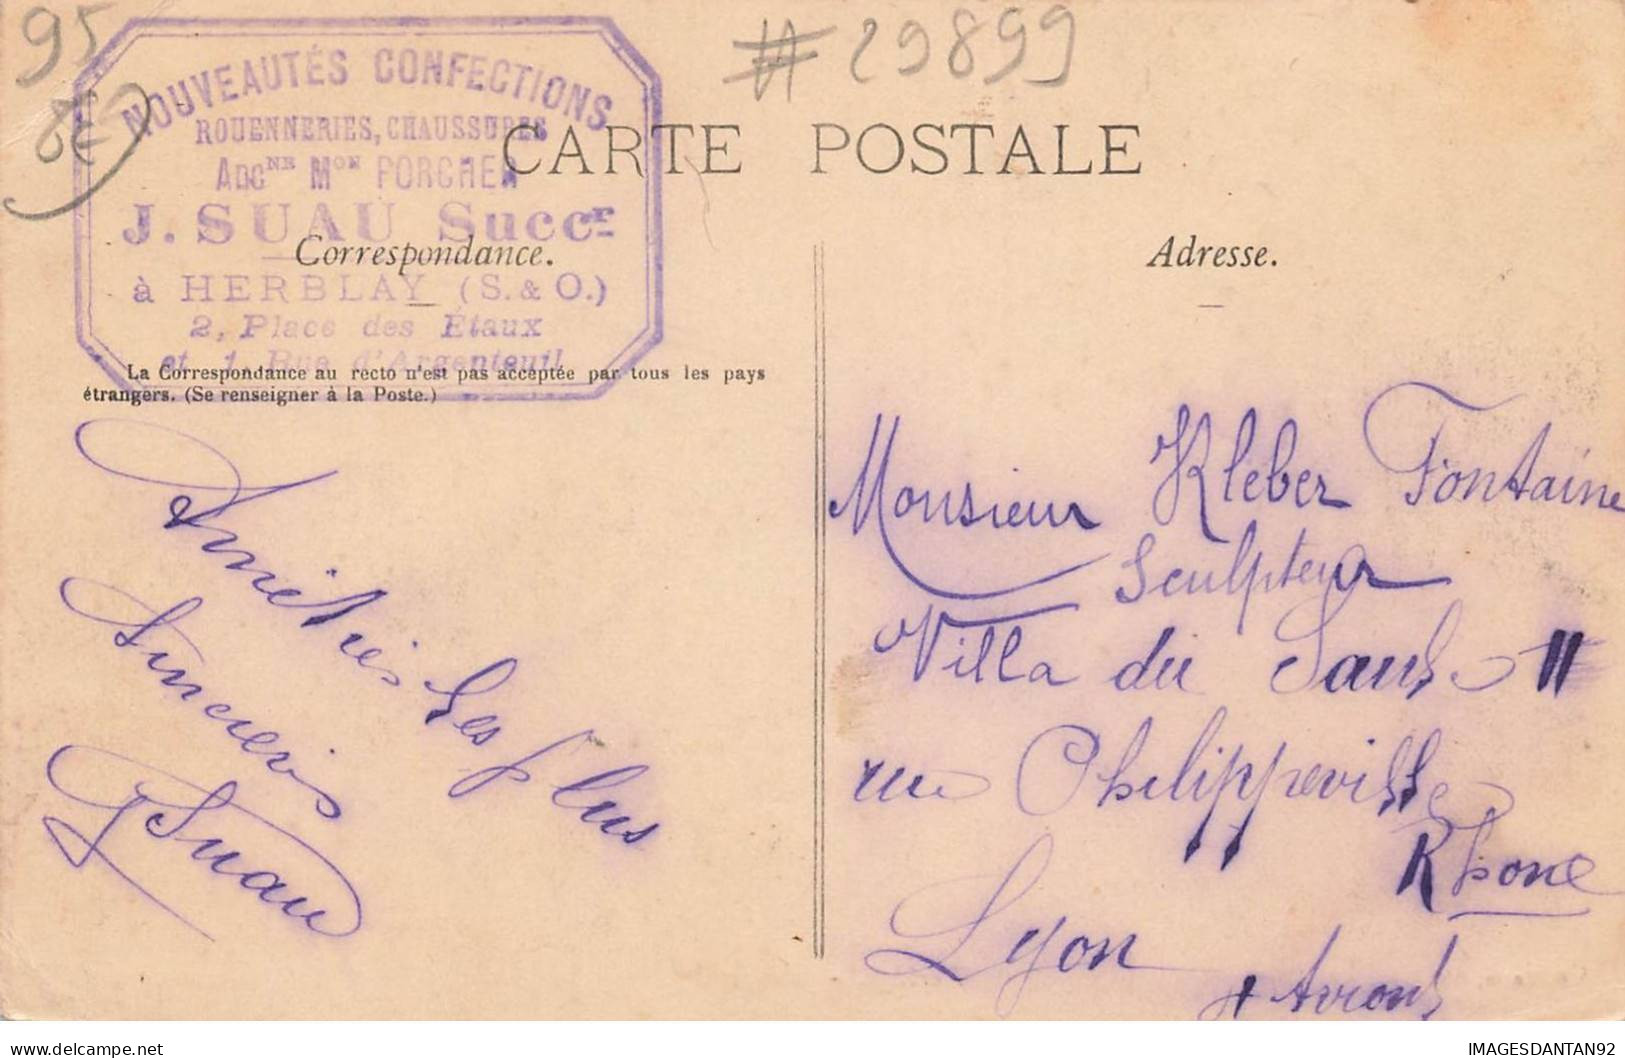 95
# 29899
NOUVEAUTÉS CONFECTIONS
ROUENNERIES, CHAUSSURES
Ancne Mon PORCHER
J. SUAU Succr
à HERBLAY (S. & O.)
2, Place des Étaux
et 1, Rue d'Argenteuil
CARTE POSTALE
Correspondance.
La Correspondance au recto n'est pas acceptée par tous les pays
étrangers. (Se renseigner à la Poste.)
Amitiés les plus
sincères
Suau
Adresse.
Monsieur Kleber Fontaine
Sculpteur
Villa du 11
rue Philippeville
Rhone
Lyon
delcampe.net
IMAGESDANTAN92